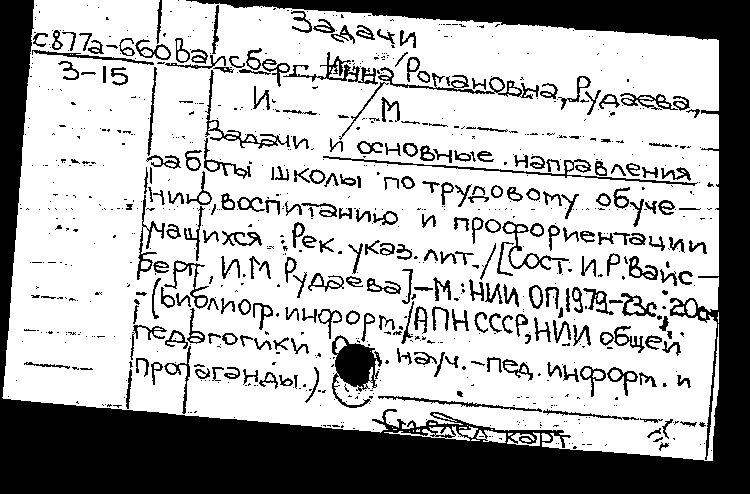 Задачи
с877а-660 Вайсберг, Инна Романовна, Рудаева,
3-15
И. М
Задачи и основные направления
работы школы по трудовому обуче-
нию, воспитанию и профориентации
учащихся: Рек. указ. лит. /[Сост. И.Р. Вайс-
берг, И.М. Рудаева].-М.: НИИ ОП, 1979-23с.; 20см
-(Библиогр. информ./АПН СССР, НИИ общей
педагогики. науч.-пед. информ. и
пропаганды.)
См. след. карт.